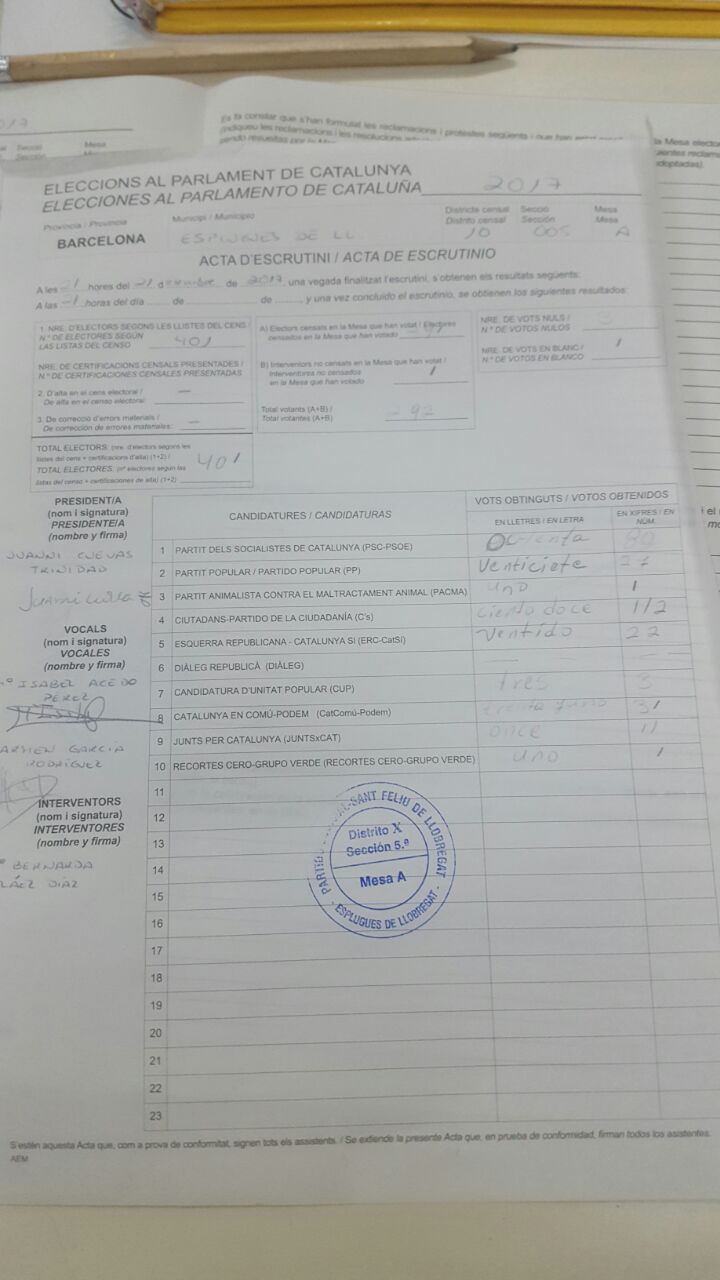 2017
Es fa constar que s'han formulat les reclamacions i protestes següents i que han
(indiqueu les reclamacions i les resolucions
Secció Mesa
Sección
la Mesa elector
adoptadas).
ELECCIONS AL PARLAMENT DE CATALUNYA
ELECCIONES AL PARLAMENTO DE CATALUÑA 2017
Província / Provincia
BARCELONA
Municipi / Municipio
ESPLUGUES DE LL.
Districte censal Secció Mesa
Distrito censal Sección Mesa
10 005 A
ACTA D'ESCRUTINI / ACTA DE ESCRUTINIO
A les hores del 21 de de 2017, una vegada finalitzat l'escrutini, s'obtenen els resultats següents:
A las horas del día de de , y una vez concluido el escrutinio, se obtienen los siguientes resultados:
1. NRE. D'ELECTORS SEGONS LES LLISTES DEL CENS
N.º DE ELECTORES SEGÚN
LAS LISTAS DEL CENSO 401
NRE. DE CERTIFICACIONS CENSALS PRESENTADES /
N.º DE CERTIFICACIONES CENSALES PRESENTADAS
2. D'alta en el cens electoral /
De alta en el censo electoral: —
3. De correcció d'errors materials /
De corrección de errores materiales: —
TOTAL ELECTORS: (nre. d'electors segons les
llistes del cens + certificacions d'alta) (1+2) /
TOTAL ELECTORES: (nº electores según las
listas del censo + certificaciones de alta) (1+2) 401
A) Electors censats en la Mesa que han votat / Electores
censados en la Mesa que han votado
B) Interventors no censats en la Mesa que han votat /
Interventores no censados
en la Mesa que han votado 1
Total votants (A+B) /
Total votantes (A+B) 292
NRE. DE VOTS NULS /
N.º DE VOTOS NULOS 3
NRE. DE VOTS EN BLANC /
N.º DE VOTOS EN BLANCO 1
PRESIDENT/A
(nom i signatura)
PRESIDENTE/A
(nombre y firma)
JUANNI CUEVAS
TRINIDAD
VOCALS
(nom i signatura)
VOCALES
(nombre y firma)
ISABEL ACEDO
PÉREZ
GARCÍA
RODRÍGUEZ
INTERVENTORS
(nom i signatura)
INTERVENTORES
(nombre y firma)
BERNARDA
DÍAZ
CANDIDATURES / CANDIDATURAS
VOTS OBTINGUTS / VOTOS OBTENIDOS
EN LLETRES / EN LETRA
EN XIFRES / EN NÚM.
1 PARTIT DELS SOCIALISTES DE CATALUNYA (PSC-PSOE) Ochenta 80
2 PARTIT POPULAR / PARTIDO POPULAR (PP) Venticiete 27
3 PARTIT ANIMALISTA CONTRA EL MALTRACTAMENT ANIMAL (PACMA) uno 1
4 CIUTADANS-PARTIDO DE LA CIUDADANÍA (C's) Ciento doce 112
5 ESQUERRA REPUBLICANA - CATALUNYA SÍ (ERC-CatSí) Ventido 22
6 DIÀLEG REPUBLICÀ (DIÀLEG) — —
7 CANDIDATURA D'UNITAT POPULAR (CUP) tres 3
8 CATALUNYA EN COMÚ-PODEM (CatComú-Podem) 31
9 JUNTS PER CATALUNYA (JUNTSxCAT) once 11
10 RECORTES CERO-GRUPO VERDE (RECORTES CERO-GRUPO VERDE) uno 1
11
12
13
14
15
16
17
18
19
20
21
22
23
SANT FELIU DE LLOBREGAT
Distrito X
Sección 5.ª
Mesa A
- ESPLUGUES DE LLOBREGAT -
S'estén aquesta Acta que, com a prova de conformitat, signen tots els assistents. / Se extiende la presente Acta que, en prueba de conformidad, firman todos los asistentes.
AEM